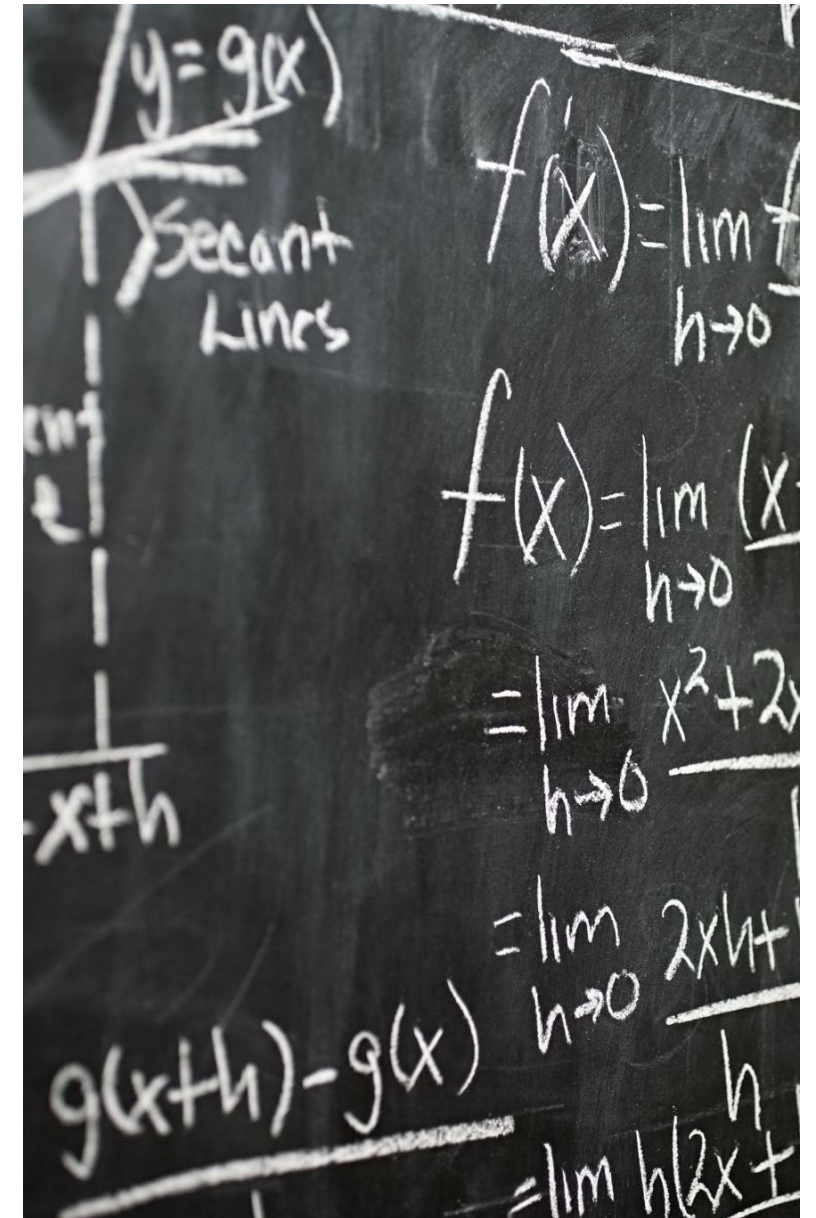 y=g(x)
Secant
Lines
x+h
g(x+h)-g(x)
f'(x)=lim
h→0
f(x)=lim (x
h→0
=lim x²+2x
h→0
=lim 2xh+
h→0 h
=lim h(2x+